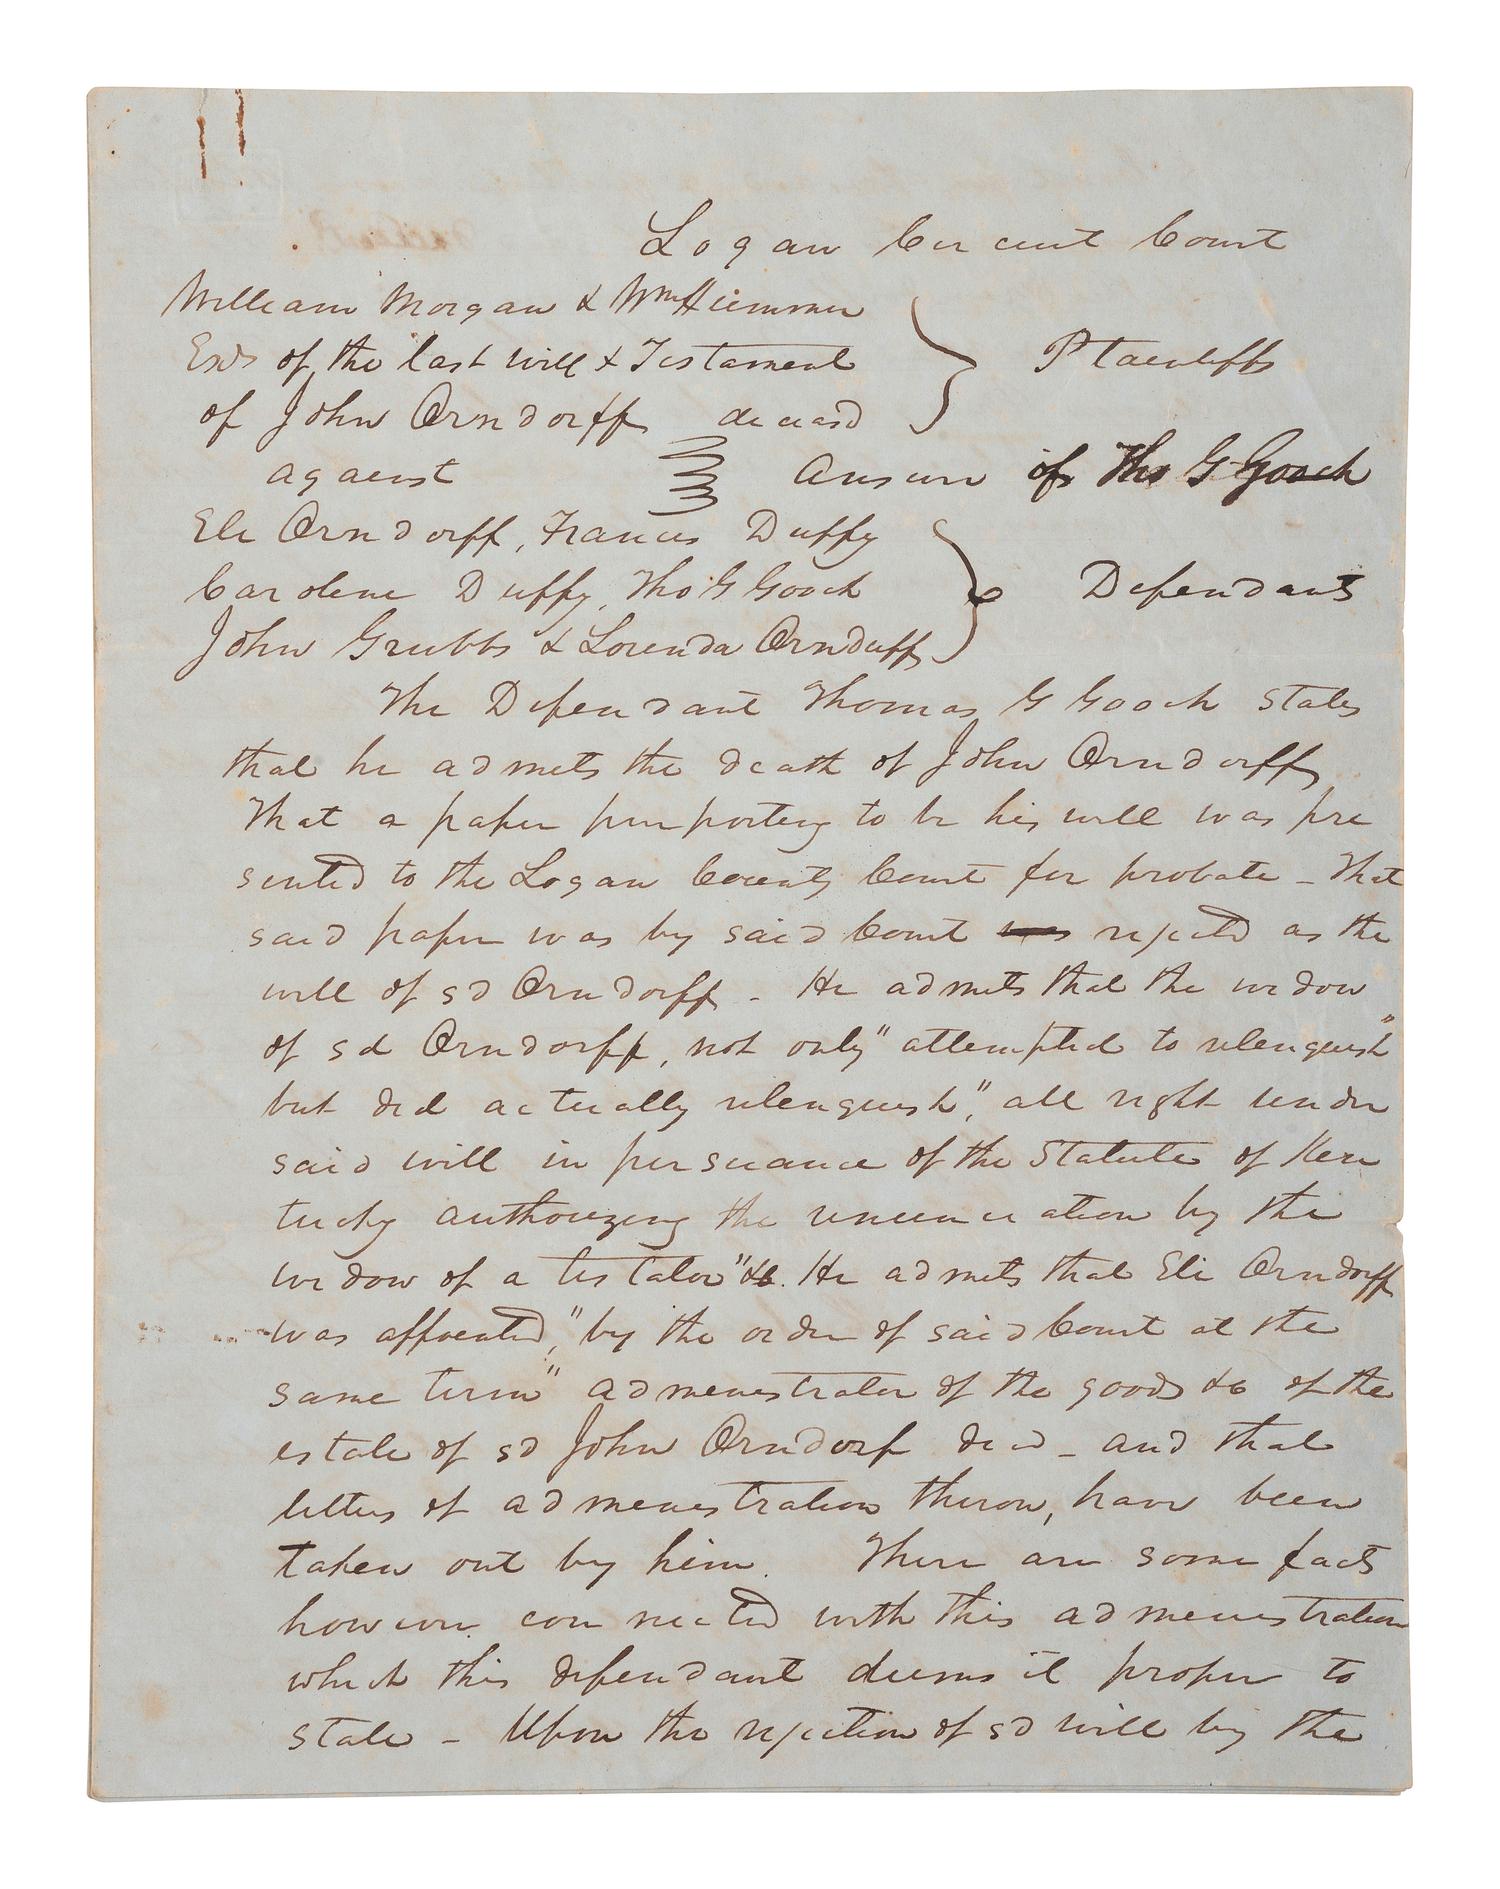 Logan Circuit Court
William Morgan & Wm
Exrs of the last will & Testament
of John Orndorff deceasd
Plaintiffs
against
Answer of Thos G Gooch
Eli Orndorff, Francis Duffy
Caroline Duffy, Tho G Gooch
John Grubbs & Lorenda Orndurff
Defendants
The Defendant Thomas G Gooch states
that he admits the death of John Orndorff
That a paper purporting to be his will was pre
sented to the Logan County Court for probate – That
said paper was by said Court was rejected as the
will of sd Orndorff – He admits that the widow
of sd Orndorff, not only "attempted to relenquish"
but did actually relenquish", all right under
said will in persuance of the Statute of Ken
tucky authorizing the renunciation by the
widow of a testator" &c. He admits that Eli Orndorff
was appointed, "by the order of said Court at the
same term" administrator of the goods &c of the
estate of sd John Orndorf decd – and that
letters of administration thereon, have been
taken out by him. There are some facts
however connected with this administration
which this defendant deems it proper to
state – Upon the rejection of sd will by the